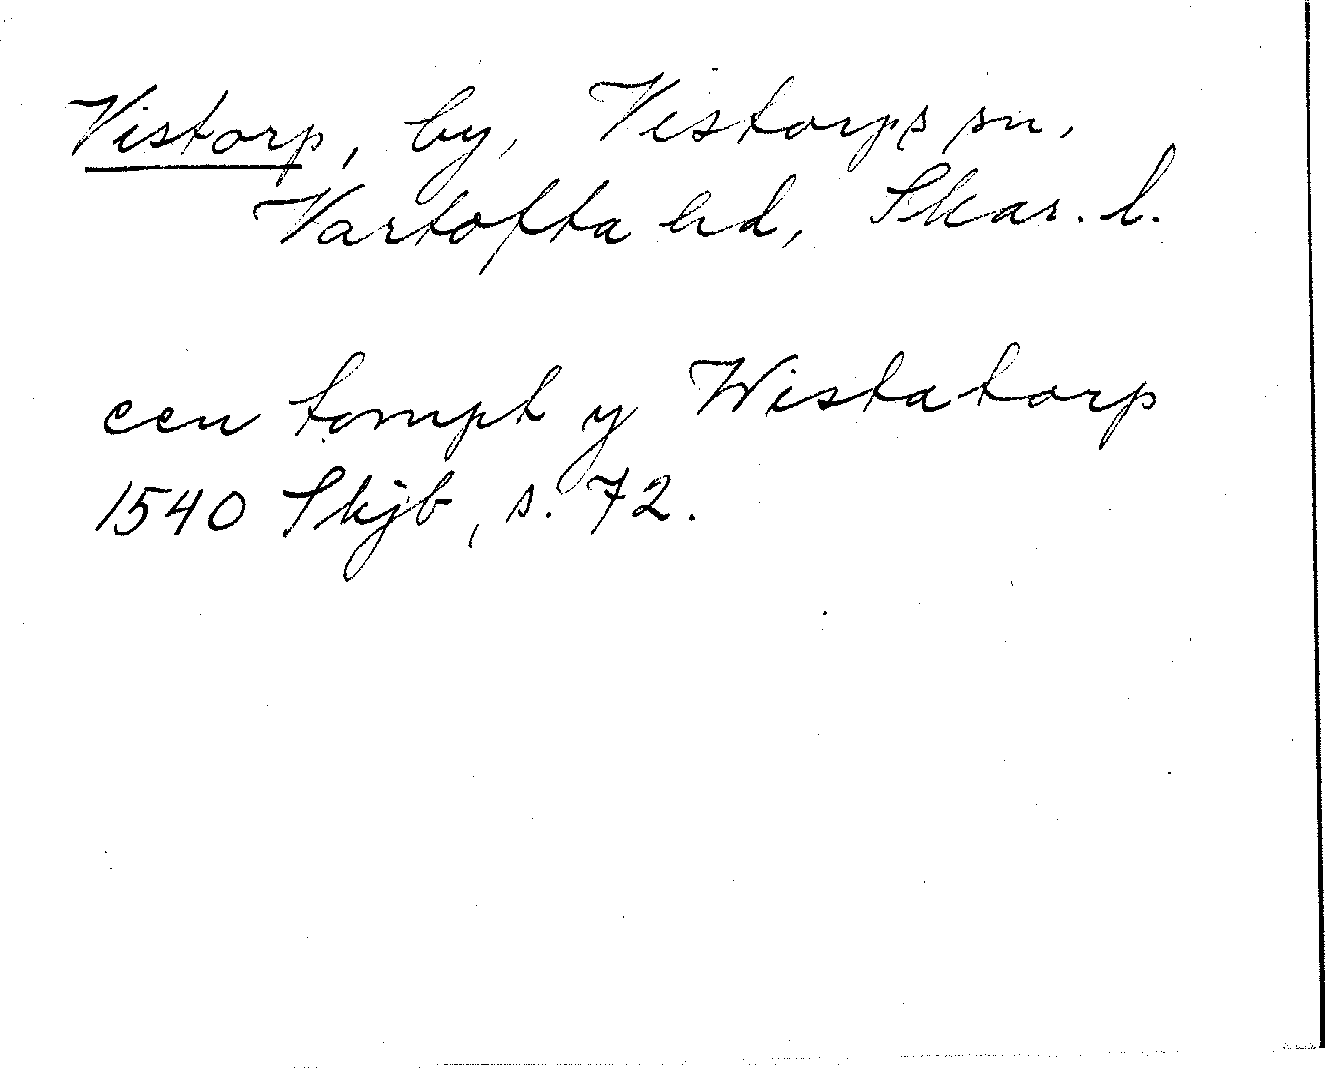 Vistorp, by, Vistorps sn,
Vartofta hd, Skar. l.
een tompt y Wistatorp
1540 Skjb, s. 72.